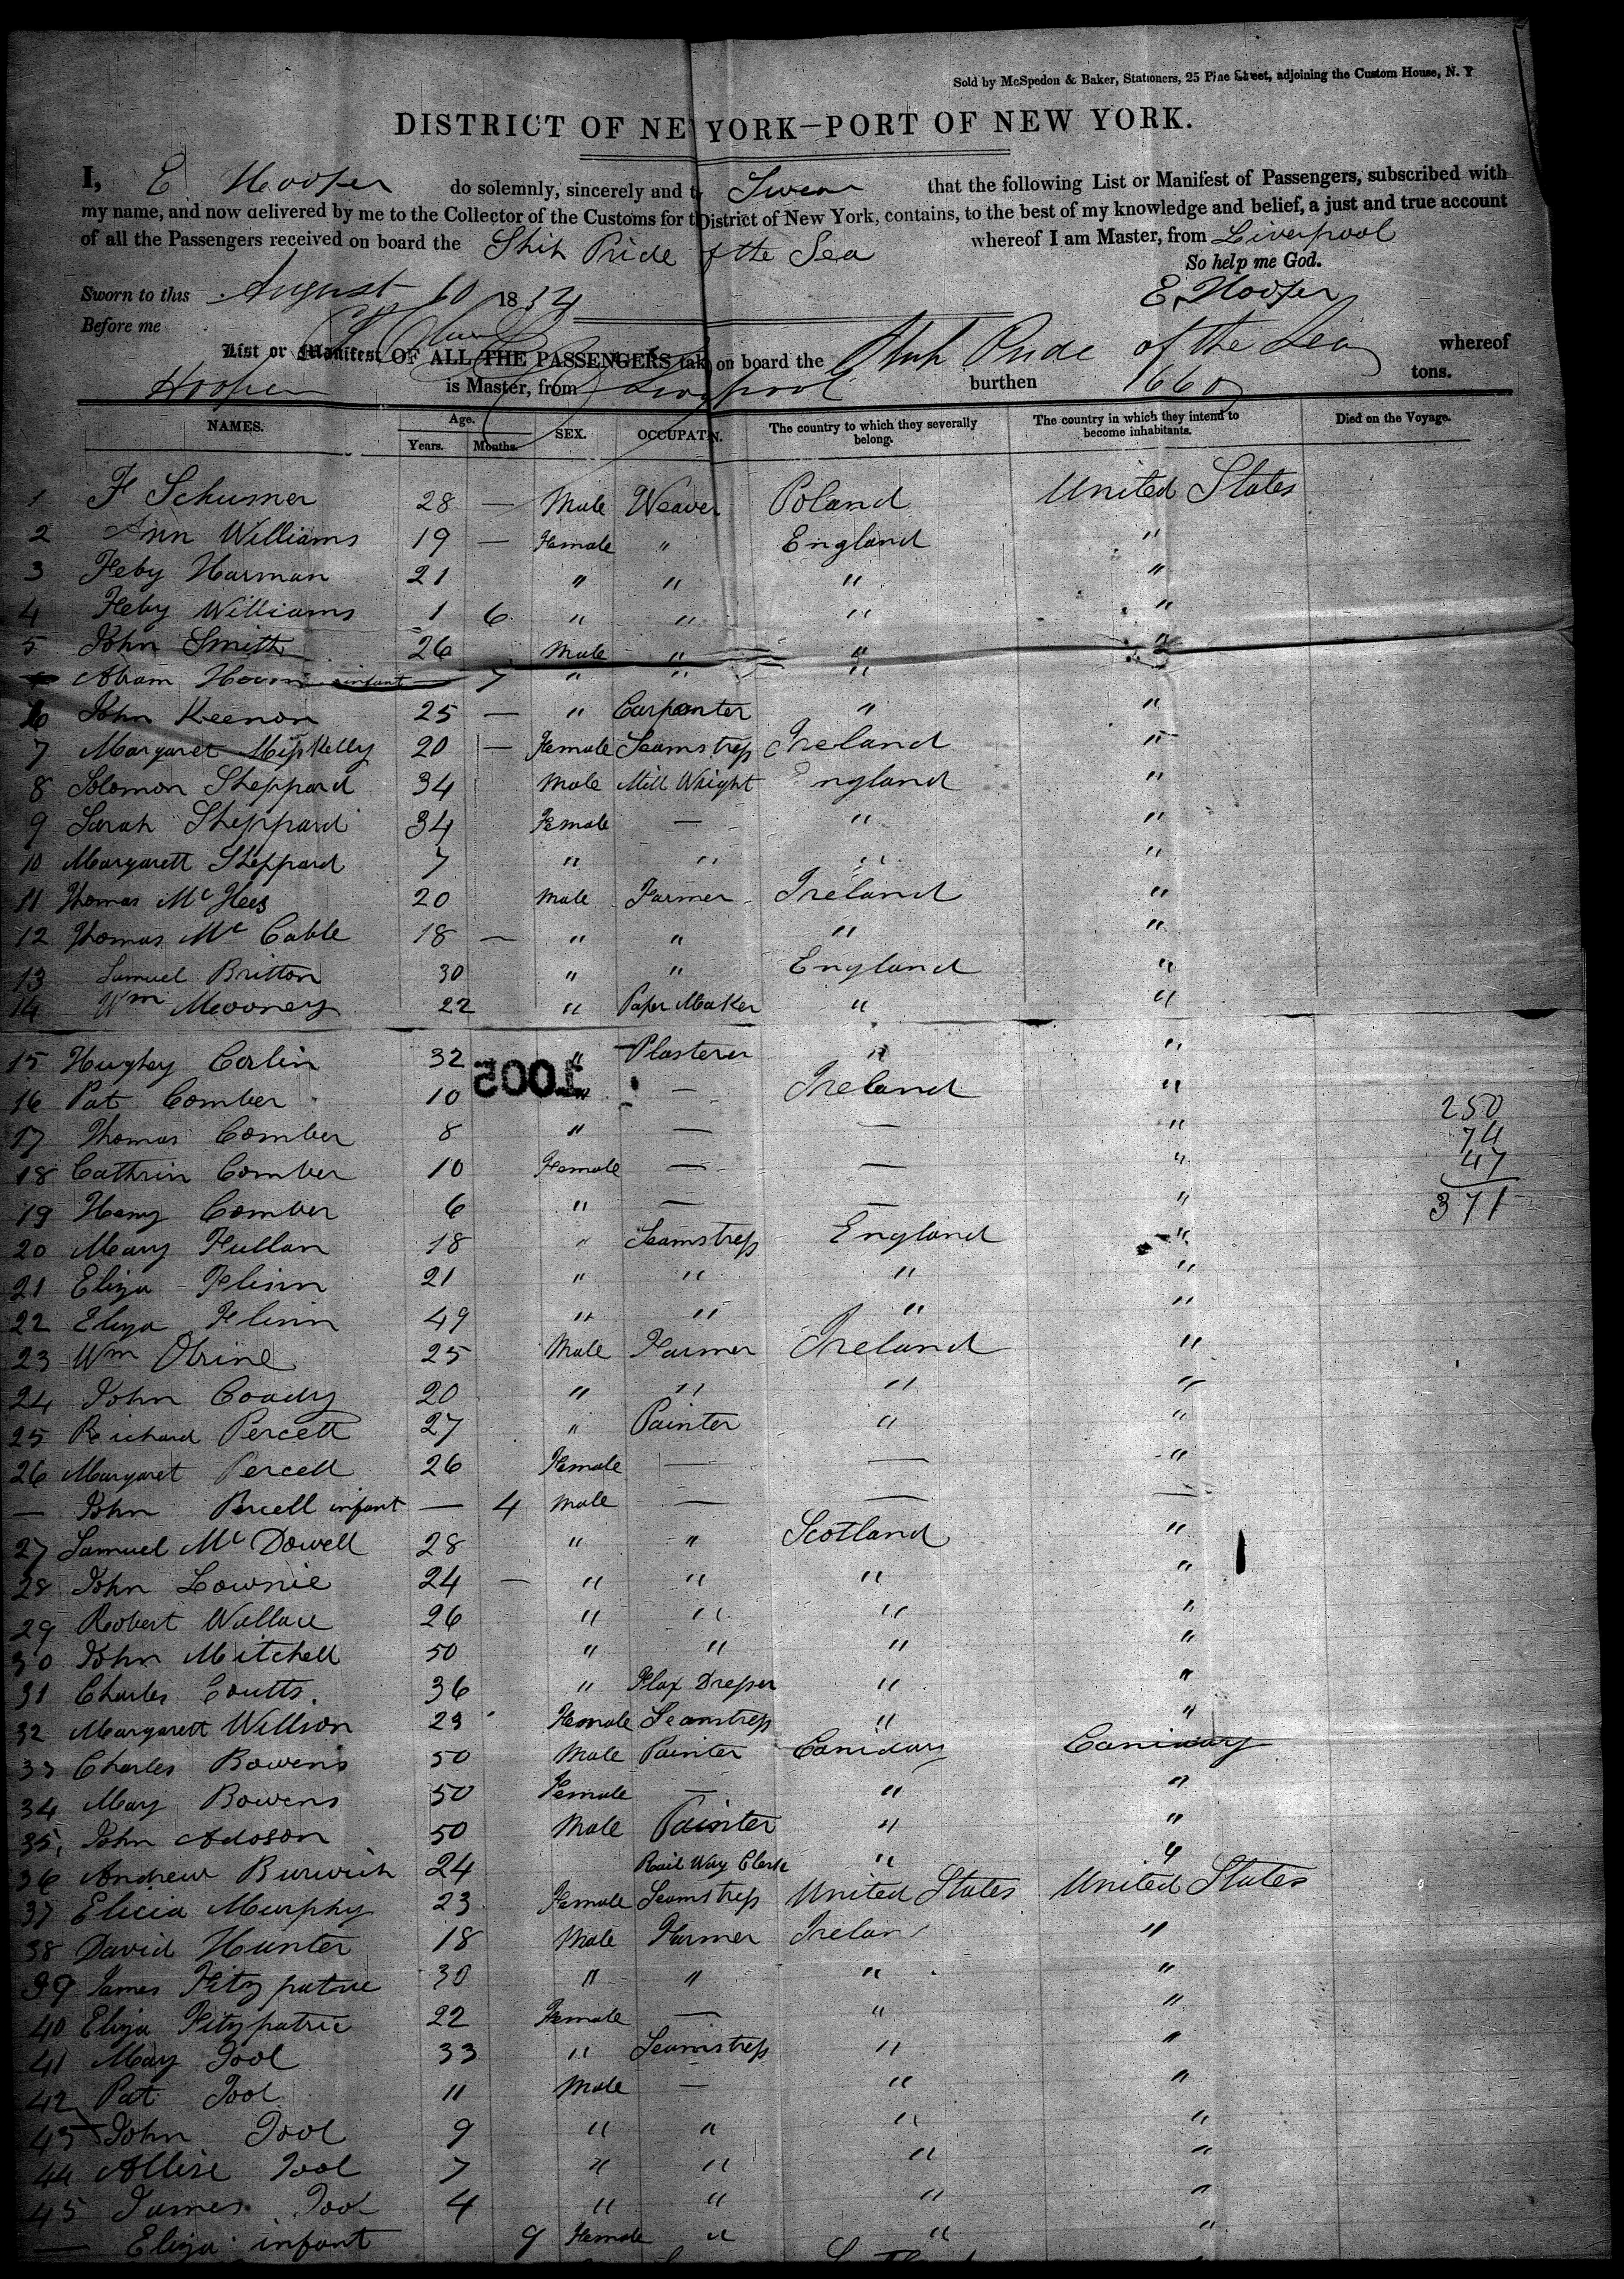 Sold by McSpedon & Baker, Stationers, 25 Pine Street, adjoining the Custom House, N. Y
DISTRICT OF NE YORK—PORT OF NEW YORK.
I, E Hooper do solemnly, sincerely and t Swear that the following List or Manifest of Passengers, subscribed with
my name, and now delivered by me to the Collector of the Customs for t District of New York, contains, to the best of my knowledge and belief, a just and true account
of all the Passengers received on board the Ship Pride of the Sea whereof I am Master, from Liverpool
So help me God.
Sworn to this August 10 1854 E Hooper
Before me
List or Manifest OF ALL THE PASSENGERS tak on board the Ship Pride of the Sea whereof
Hooper is Master, from Liverpool burthen 1660 tons.
NAMES. Age. Years. Months. SEX. OCCUPAT N. The country to which they severally belong. The country in which they intend to become inhabitants. Died on the Voyage.
1 F Schusner 28 — Male Weaver Poland United States
2 Ann Williams 19 — Female " England "
3 Feby Harman 21 " " " "
4 Feby Williams 1 6 " " " "
5 John Smith 26 Male " " "
Abram infant 7 " " "
6 John Keenon 25 — " Carpenter " "
7 Margaret Misskelly 20 — Female Seamstress Ireland "
8 Solomon Sheppard 34 Male Mill Wright England "
9 Sarah Sheppard 34 Female — " "
10 Margarett Sheppard 7 " " " "
11 Thomas Mc 20 Male Farmer Ireland "
12 Thomas Mc Cable 18 — " " " "
13 Samuel Britton 30 " " England "
14 Wm Mooney 22 " Paper Maker " "
15 Hughey Corlin 32 " Plasterer " "
1005
16 Pat Comber 10 " — Ireland "
17 Thomas Comber 8 " — — "
18 Cathrin Comber 10 Female — — "
19 Hany Comber 6 " — — "
250
74
47
371
20 Mary Fullan 18 " Seamstress England "
21 Eliza Flinn 21 " " " "
22 Eliza Flinn 49 " " " "
23 Wm Obrine 25 Male Farmer Ireland "
24 John Coady 20 " " " "
25 Richard Percell 27 " Painter " "
26 Margaret Percell 26 Female — — "
— John Percell infant — 4 Male — — —
27 Samuel Mc Dowell 28 " " Scotland "
28 John Lownie 24 — " " " "
29 Robert Wallace 26 " " " "
30 John Mitchell 50 " " " "
31 Charles Coutts. 36 " Flax Dresser " "
32 Margarett Willson 23 Female Seamstress " "
33 Charles Bowens 50 Male Painter Canidary Caniday
34 May Bowens 50 Female — " "
35, John Adoson 50 Male Painter " "
36 Andrew Burwich 24 Rail Way Clerk " "
37 Elicia Murphy 23 Female Seamstress United States United States
38 David Hunter 18 Male Farmer Irelan "
39 James Fitzpatric 30 " " " "
40 Eliza Fitzpatric 22 Female — " "
41 May Tool 33 " Seamstress " "
42 Pat Tool 11 Male — " "
43 John Tool 9 " " " "
44 Allise Tool 7 " " " "
45 James Tool 4 " " " "
— Eliza infant 9 Female " " "